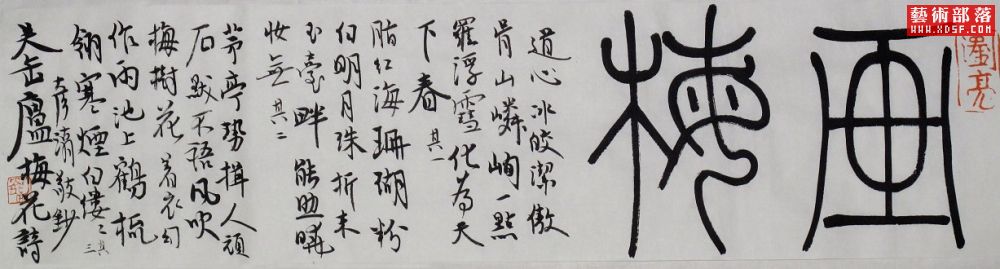 藝術部落
www.XDSF.com
画梅
道心冰皎潔傲
骨山嶙峋一點
羅浮雪化為天
下春 其一
脂紅海珊瑚粉
白明月珠折来
玉臺畔能照曉
妝無 其二
茅亭勢揖人頑
石默不語風吹
梅樹花着衣幻
作雨池上鶴梳
翎寒煙白縷々 其三
敬鈔
吴缶廬梅花詩